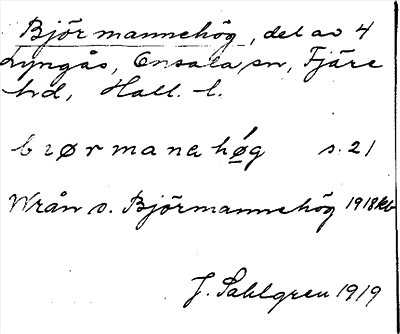 Björmannehög, del av 4
Lyngås, Onsala sn, Fjäre
hd, Hall. l.
biørmanehǿg s. 21
Wrån o. Björmannehög 1918 kb
J. Sahlgren 1919